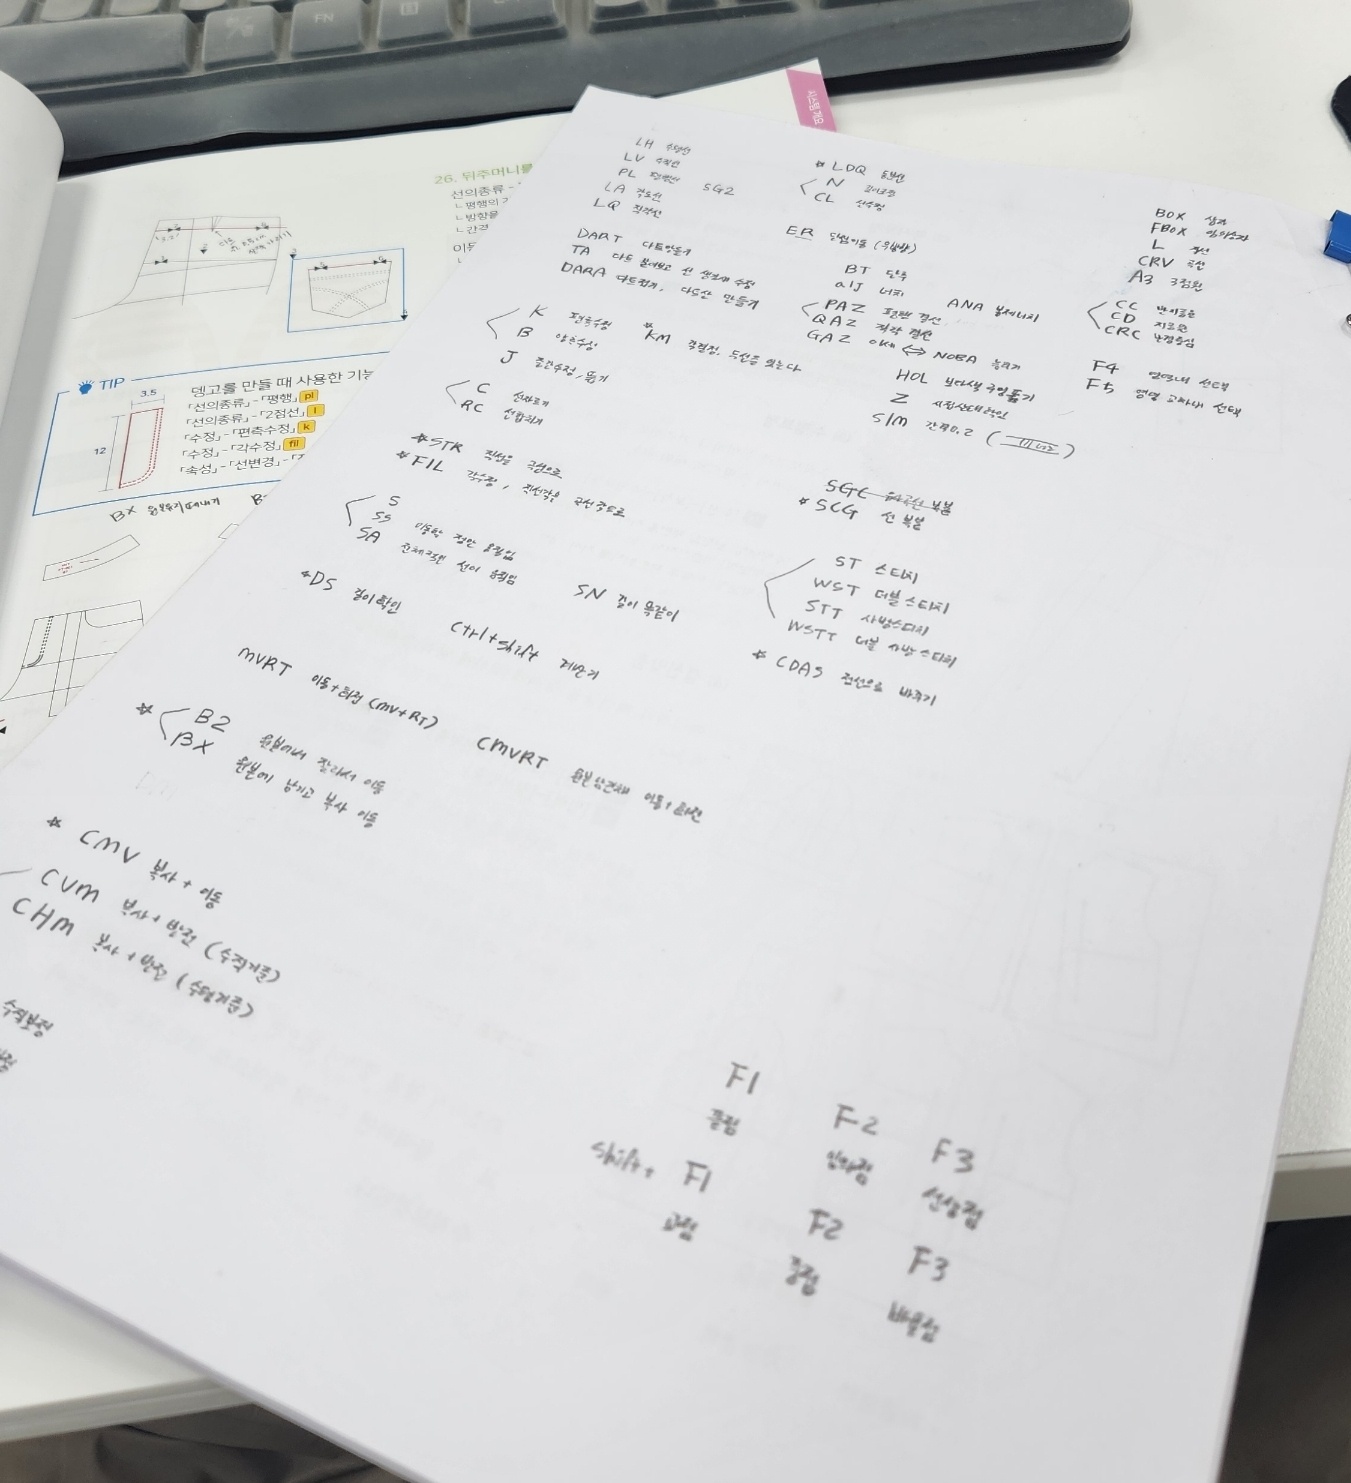 FN
시스템 개요
26. 뒤주머니를
선의종류
ㄴ평행의
ㄴ방향을
ㄴ간격
TIP
뎅고를 만들 때 사용한 기능
「선의종류」-「평행」 pl
「선의종류」-「2점선」 l
「수정」-「편측수정」 k
「수정」-「각수정」 fil
「속성」-「선변경」-
3.5
12
BX
LH 수평선
LV 수직선
PL 평행선 SG2
LA 각도선
LQ 직각선
* LDQ
N 길이조절
CL 선수정
ER
DART 다트만들기
TA 다트 붙여보고 선 생성과 수정
DARA 다트접기, 다트산 만들기
BT 단추
alJ 너치
PAZ 평행 결선
QAZ 직각 결선
GAZ ⇔ NOBA 늘리기
ANA
BOX
FBOX
L 직선
CRV 곡선
A3 3점원
CC 반지름원
CD 지름원
CRC 반경중심
K 편측수정
B 양측수정
J 중간수정, 옮기
* KM 각결정, 두선을 잇는다
HOL
Z
S/M 간격0.2
F4 영역내 선택
F5 영역 교차내 선택
C 선자르기
RC 선합치기
* STR 직선을 곡선으로
* FIL 각수정, 직선각을 곡선각도로
SGC
* SCG 선 복붙
S
SS 이동한 점만 움직임
SA 전체적인 선이 움직임
* DS 길이확인
SN 길이 똑같이
Ctrl+shift 계산기
ST 스티치
WST 더블스티치
STT 사방스티치
WSTT 더블 사방스티치
* CDAS 전선으로 바꾸기
MVRT 이동+회전 (MV+RT)
CMVRT 원본남긴채 이동+회전
* B2 원본에서 잘라서 이동
BX 원본에 남기고 복사 이동
* CMV 복사 + 이동
CVM 복사 + 반전 (수직기준)
CHM 복사 + 반전 (수평기준)
수직보정
F1 F2 F3
끝점 임의점 선상점
shift+ F1 F2 F3
교점 중점 비율점